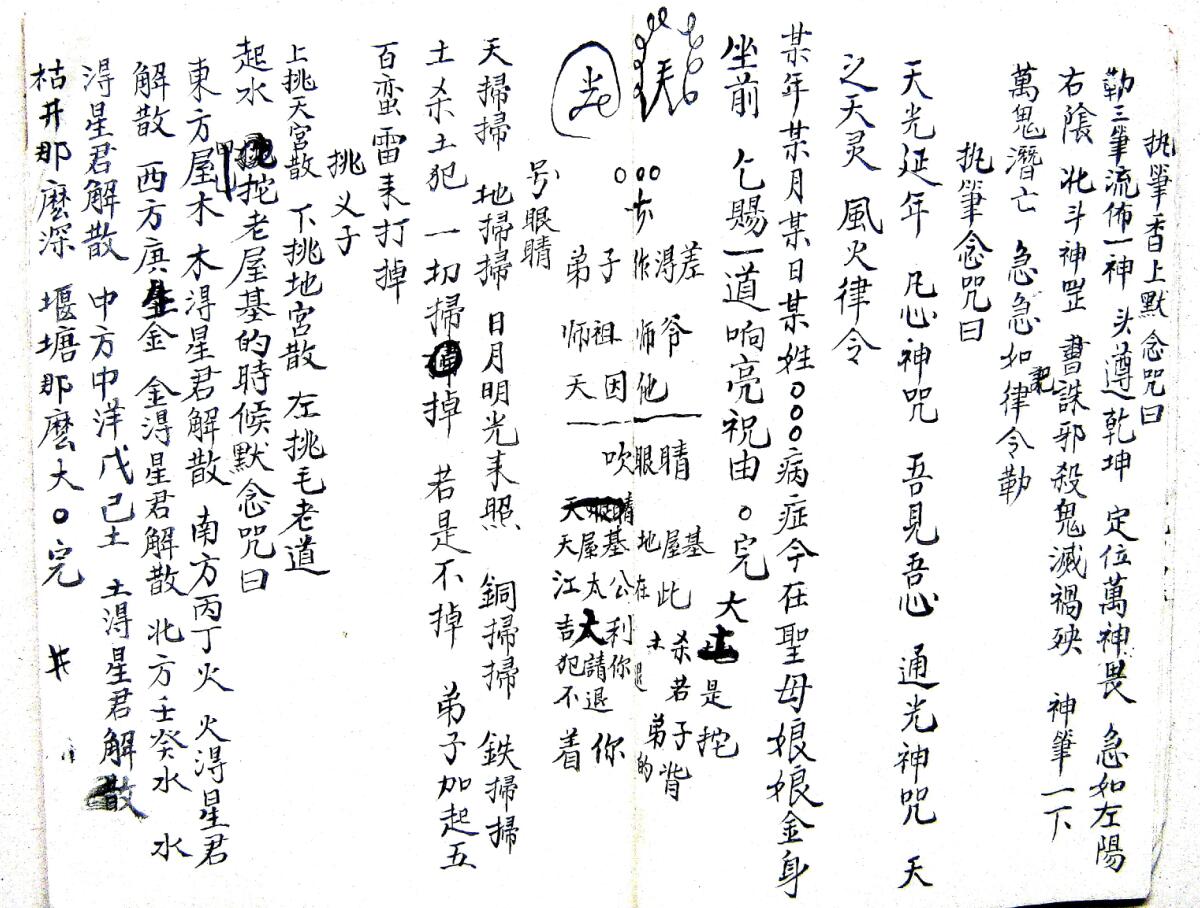 执筆香上默念咒曰
勒三筆流佈一神 头遵乾坤 定位萬神畏 急如左陽
右陰 北斗神罡 書誅邪殺鬼滅禍殃 神筆一下
萬鬼潛亡 急急如律令勒
执筆念咒曰
天光延年 凡心神咒 吾見吾心 通光神咒 天
之天灵 風火律令
某年某月某日某姓○○○病症今在聖母娘娘金身
坐前 乞賜一道响亮祝由 ○完
大土
地屋基 此 杀 若 是
弟子挖
的背
差 得 你
师爷 他
弟子
师祖
天因
吹眼睛
天屋基
江太公在
吉大利
犯請你退
不退
着你
号眼睛
天掃掃 地掃掃 日月明光来照 銅掃掃 鉄掃掃
土杀土犯 一切掃掉 若是不掉 弟子加起五
百蛮雷来打掉
挑义子
上挑天宮散 下挑地宮散 左挑毛老道
起水 挖老屋基的時候默念咒曰
東方屋木 木淂星君解散 南方丙丁火 火淂星君
解散 西方庚金 金淂星君解散 北方壬癸水 水
淂星君解散 中方中洋戊己土 土淂星君解散
枯井那麽深 堰塘那麽大 ○完